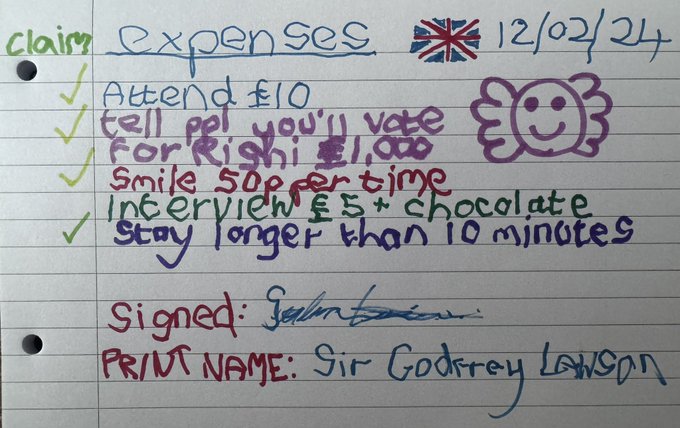 claim expenses 12/02/24
Attend £10
tell ppl you'll vote
for Rishi £1,000
Smile 50p per time
Interview £5 + chocolate
Stay longer than 10 minutes
Signed:
PRINT NAME: Sir Godfrey Lawson